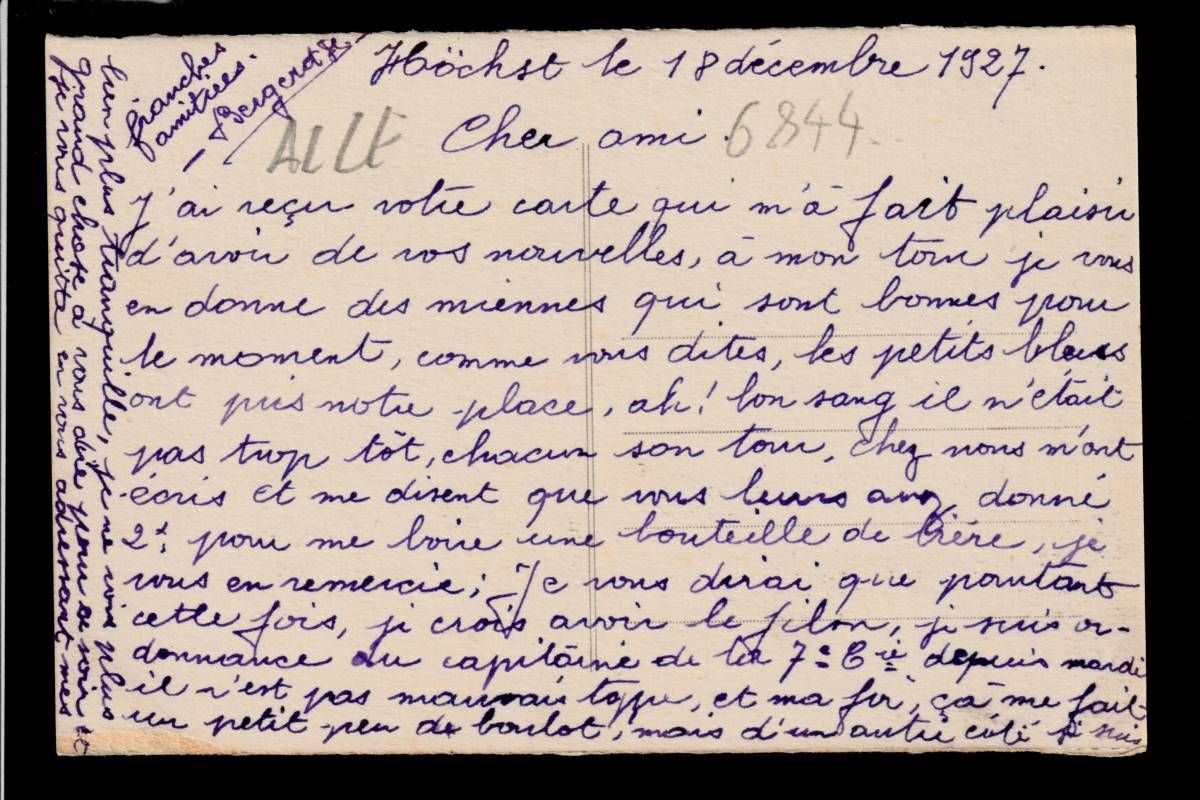 Höchst le 18 décembre 1927.
ALLE
Cher ami.
6844.
J'ai reçu votre carte qui m'à fait plaisir
d'avoir de vos nouvelles, à mon tour je vous
en donne des miennes qui sont bonnes pour
le moment, comme vous dites, les petits bleus
ont pris notre place, ah! bon sang il n'était
pas trop tôt, chacun son tour, chez nous m'ont
écris et me disent que vous leurs avez donné
2f. pour me boire une bouteille de bière, je
vous en remercie; Je vous dirai que pourtant
cette fois, je crois avoir le filon, je suis or-
donnance au capitaine de la 7e Bie depuis mardi
il n'est pas mauvais type, et ma foi, ça me fait
un petit peu de boulot, mais d'un autre côté je suis
bien plus tranquille, je ne vois plus
grand chose à vous dire pour ce soir et
je vous quitte en vous adressant mes
franches
amitiées.
Bergerot